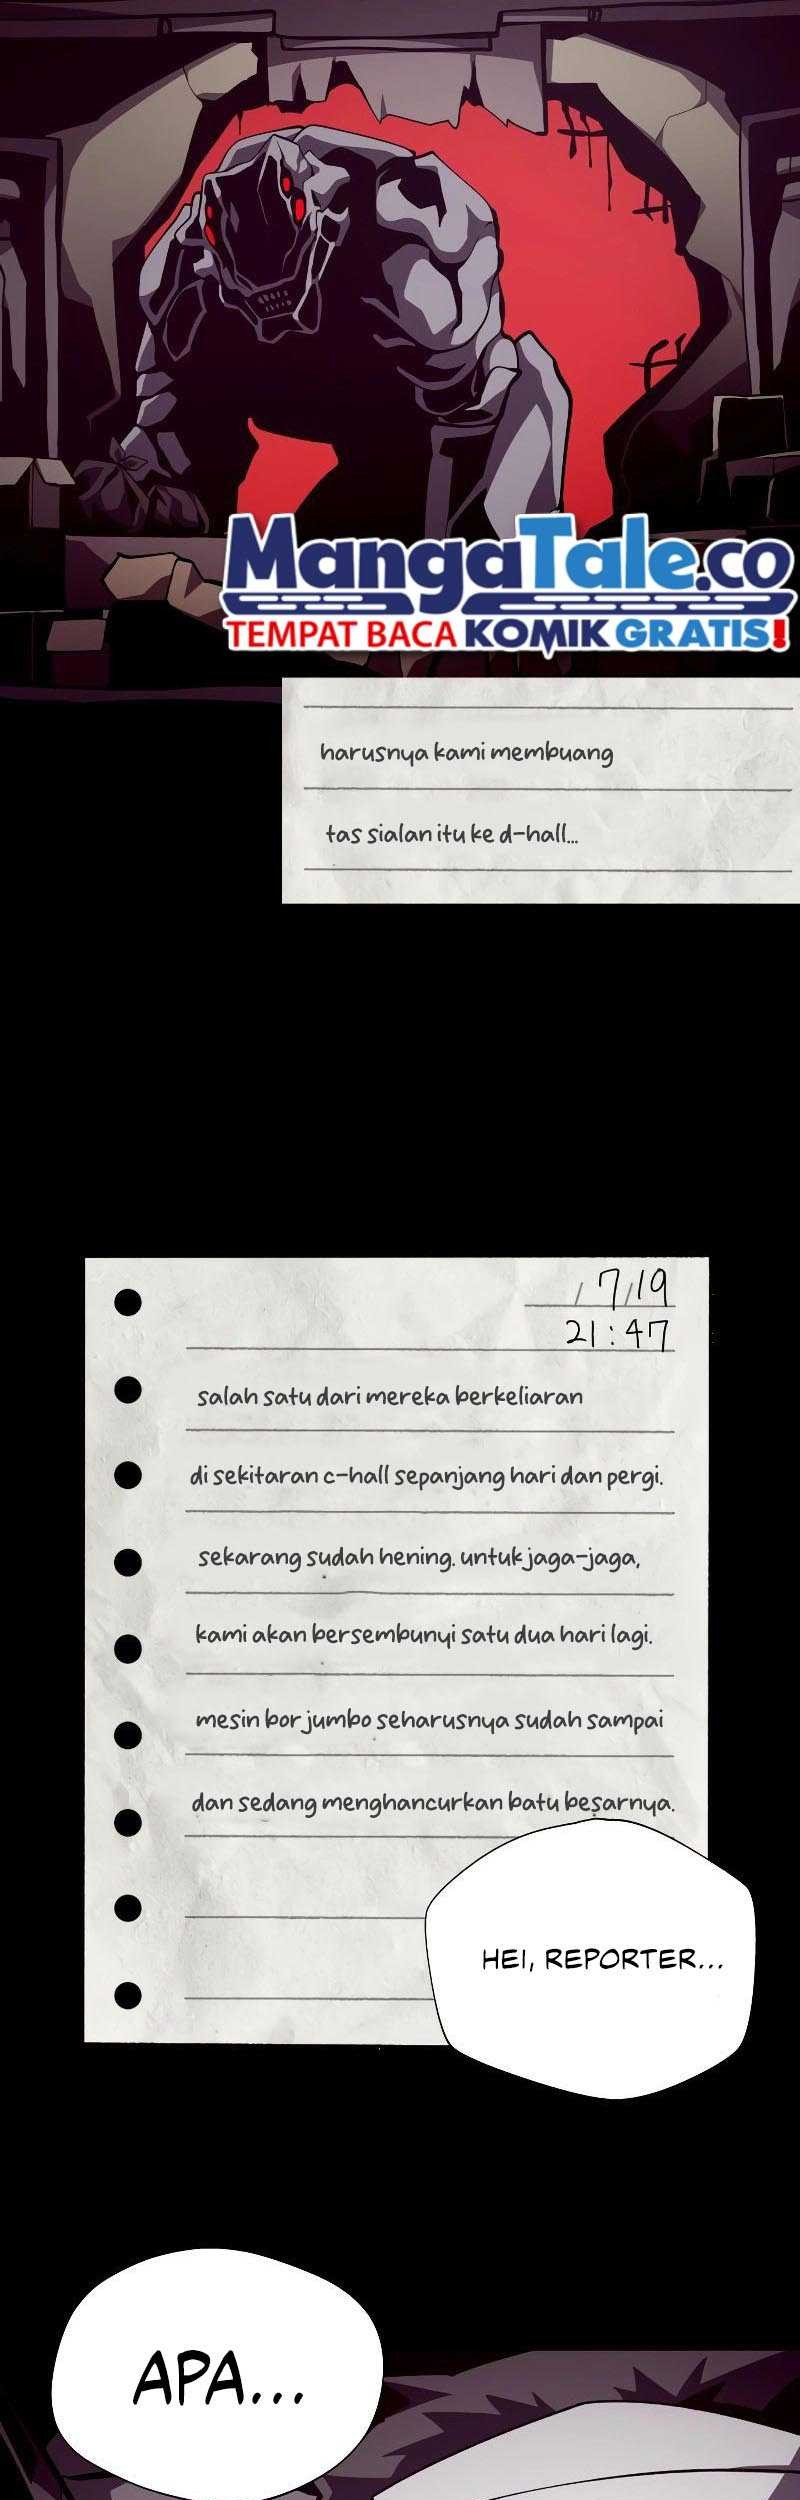 MangaTale.co
TEMPAT BACA KOMIK GRATIS!
harusnya kami membuang
tas sialan itu ke d-hall...
/7/19
21:47
salah satu dari mereka berkeliaran
di sekitaran c-hall sepanjang hari dan pergi.
sekarang sudah hening. untuk jaga-jaga,
kami akan bersembunyi satu dua hari lagi.
mesin bor jumbo seharusnya sudah sampai
dan sedang menghancurkan batu besarnya.
HEI, REPORTER...
APA...